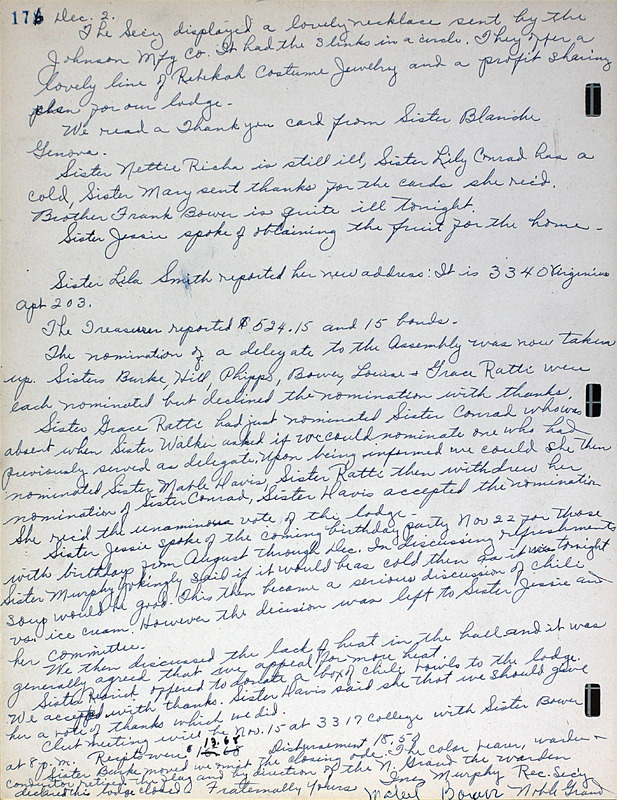 176 Dec. 2.
The Secy displayed a lovely necklace sent by the
Johnson Mfg Co. It had the 3 links in a circle. They offer a
lovely line of Rebekah Costume Jewelry and a profit sharing
plan for our lodge.
We read a Thank you card from Sister Blanche
Genova.
Sister Nettie Richa is still ill, Sister Lily Conrad has a
cold, Sister Mary sent thanks for the cards she rec'd.
Brother Frank Bower is quite ill tonight.
Sister Jessie spoke of obtaining the fruit for the home.
Sister Lila Smith reported her new address: It is 3340 Virginia
Apt 203.
The Treasurer reported $524.15 and 15 bonds.
The nomination of a delegate to the Assembly was now taken
up. Sisters Burke, Hill, Phipps, Bower, Louise & Grace Ratti were
each nominated but declined the nomination with thanks.
Sister Grace Ratti had just nominated Sister Conrad who was
absent when Sister Walker asked if we could nominate one who had
previously served as delegate. Upon being informed we could she then
nominated Sister Mable Davis. Sister Ratti then withdrew her
nomination of Sister Conrad, Sister Davis accepted the nomination.
She rec'd the unaminous vote of the lodge.
Sister Jessie spoke of the coming birthday party Nov 22 for those
with birthdays from August through Dec. In discussing refreshments
Sister Murphy jokingly said if it would be as cold then as it was tonight
soup would be good. This then became a serious discussion of chili
vs. ice cream. However the decision was left to Sister Jessie and
her committee.
We then discussed the lack of heat in the hall and it was
generally agreed that we appeal for more heat.
Sister offered to donate a box of chili bowls to the lodge.
We accepted with thanks. Sister Davis said she that we should give
her a vote of thanks which we did.
Club meeting will be Nov. 15 at 3317 College with Sister Bower
at 8 p.m. Receipts were $ 12.68 Disbursement 18.50
Sister Burke moved we omit the closing ode. The color bearer, warden +
conductor retired the flag and by direction of the N. Grand the warden
declared this lodge closed. Fraternally Yours Ines Murphy Rec. Secy.
Mabel Bower Noble Grand